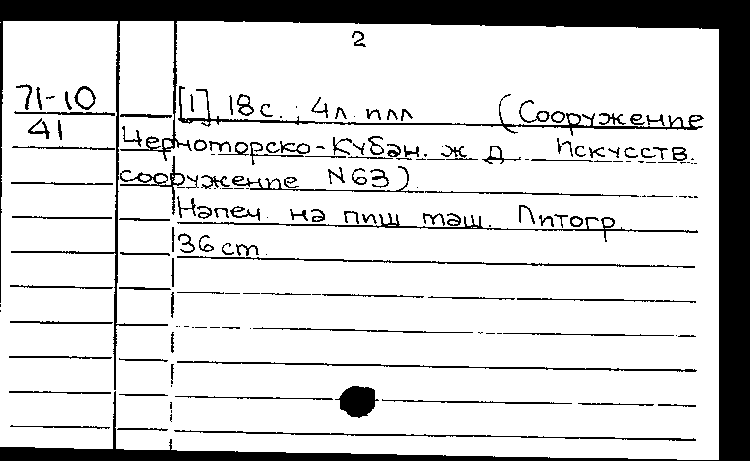 2
71-10 [1], 18 с. ; 4 л. илл (Сооружение
41 Черноморско-Кубан. ж д Искусств.
сооружение N63)
Напеч. на пиш маш. Литогр.
36 cm